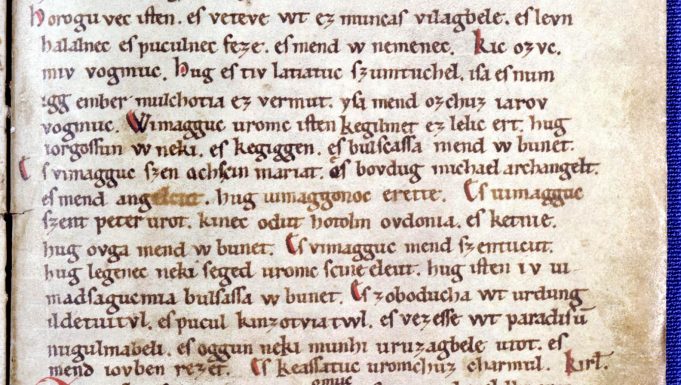 horogu vec isten. es veteve wt ez muncas vilagbele. es levn
halalnec es puculnec feze. es mend w nemenec. Kic ozvc.
miv vogmuc. hug es tiv latiatuc szumtuchel. isa es num
igg ember mulchotia ez vermut. ysa mend ozchuz iarov
vogmuc. Wimagguc uromc isten kegilmet ez lelic ert. hug
iorgossun w neki. es kegiggen. es bulscassa mend w bunet.
Es vimagguc szen achscin mariat. es bovdug michael archangelt.
es mend angelcut. hug uimaggonoc erette. Es uimagguc
szent peter urot. kinec odut hotolm ovdonia. es ketnie.
hug ovga mend w bunet. Es vimagguc mend szentucut.
hug legenec neki seged uromc scine eleut. hug isten iv ui
madsagucmia bulsassa w bunet. Es zoboducha wt urdung
ildetuitvl. es pucul kinzotviatwl. es vezesse wt paradisū
nugulmabeli. es oggun neki munhi uruzagbele utot. es
mend iovben rezet. Es keassatuc uromchuz charmul. Kirł.